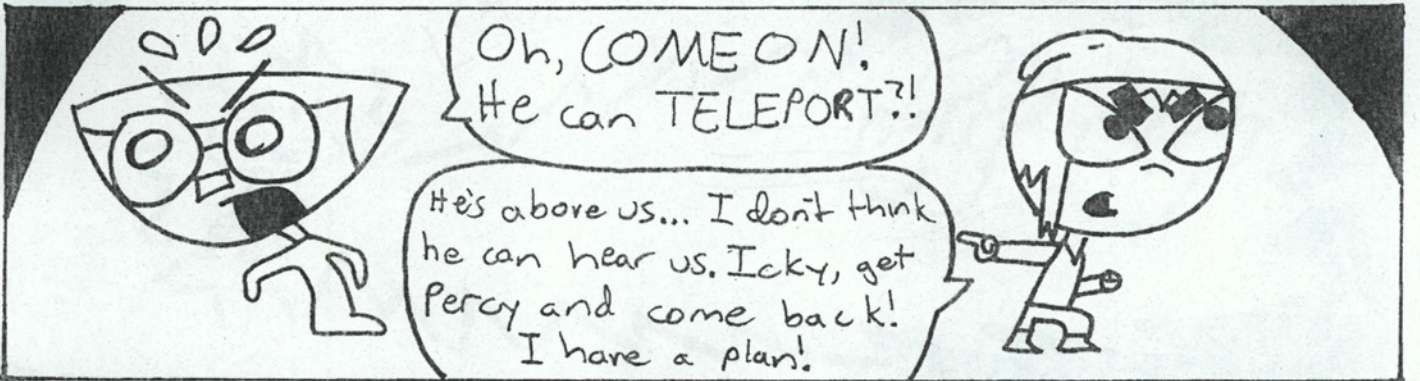 Oh, COME ON!
He can TELEPORT?!
He's above us... I don't think
he can hear us. Icky, get
Percy and come back!
I have a plan!